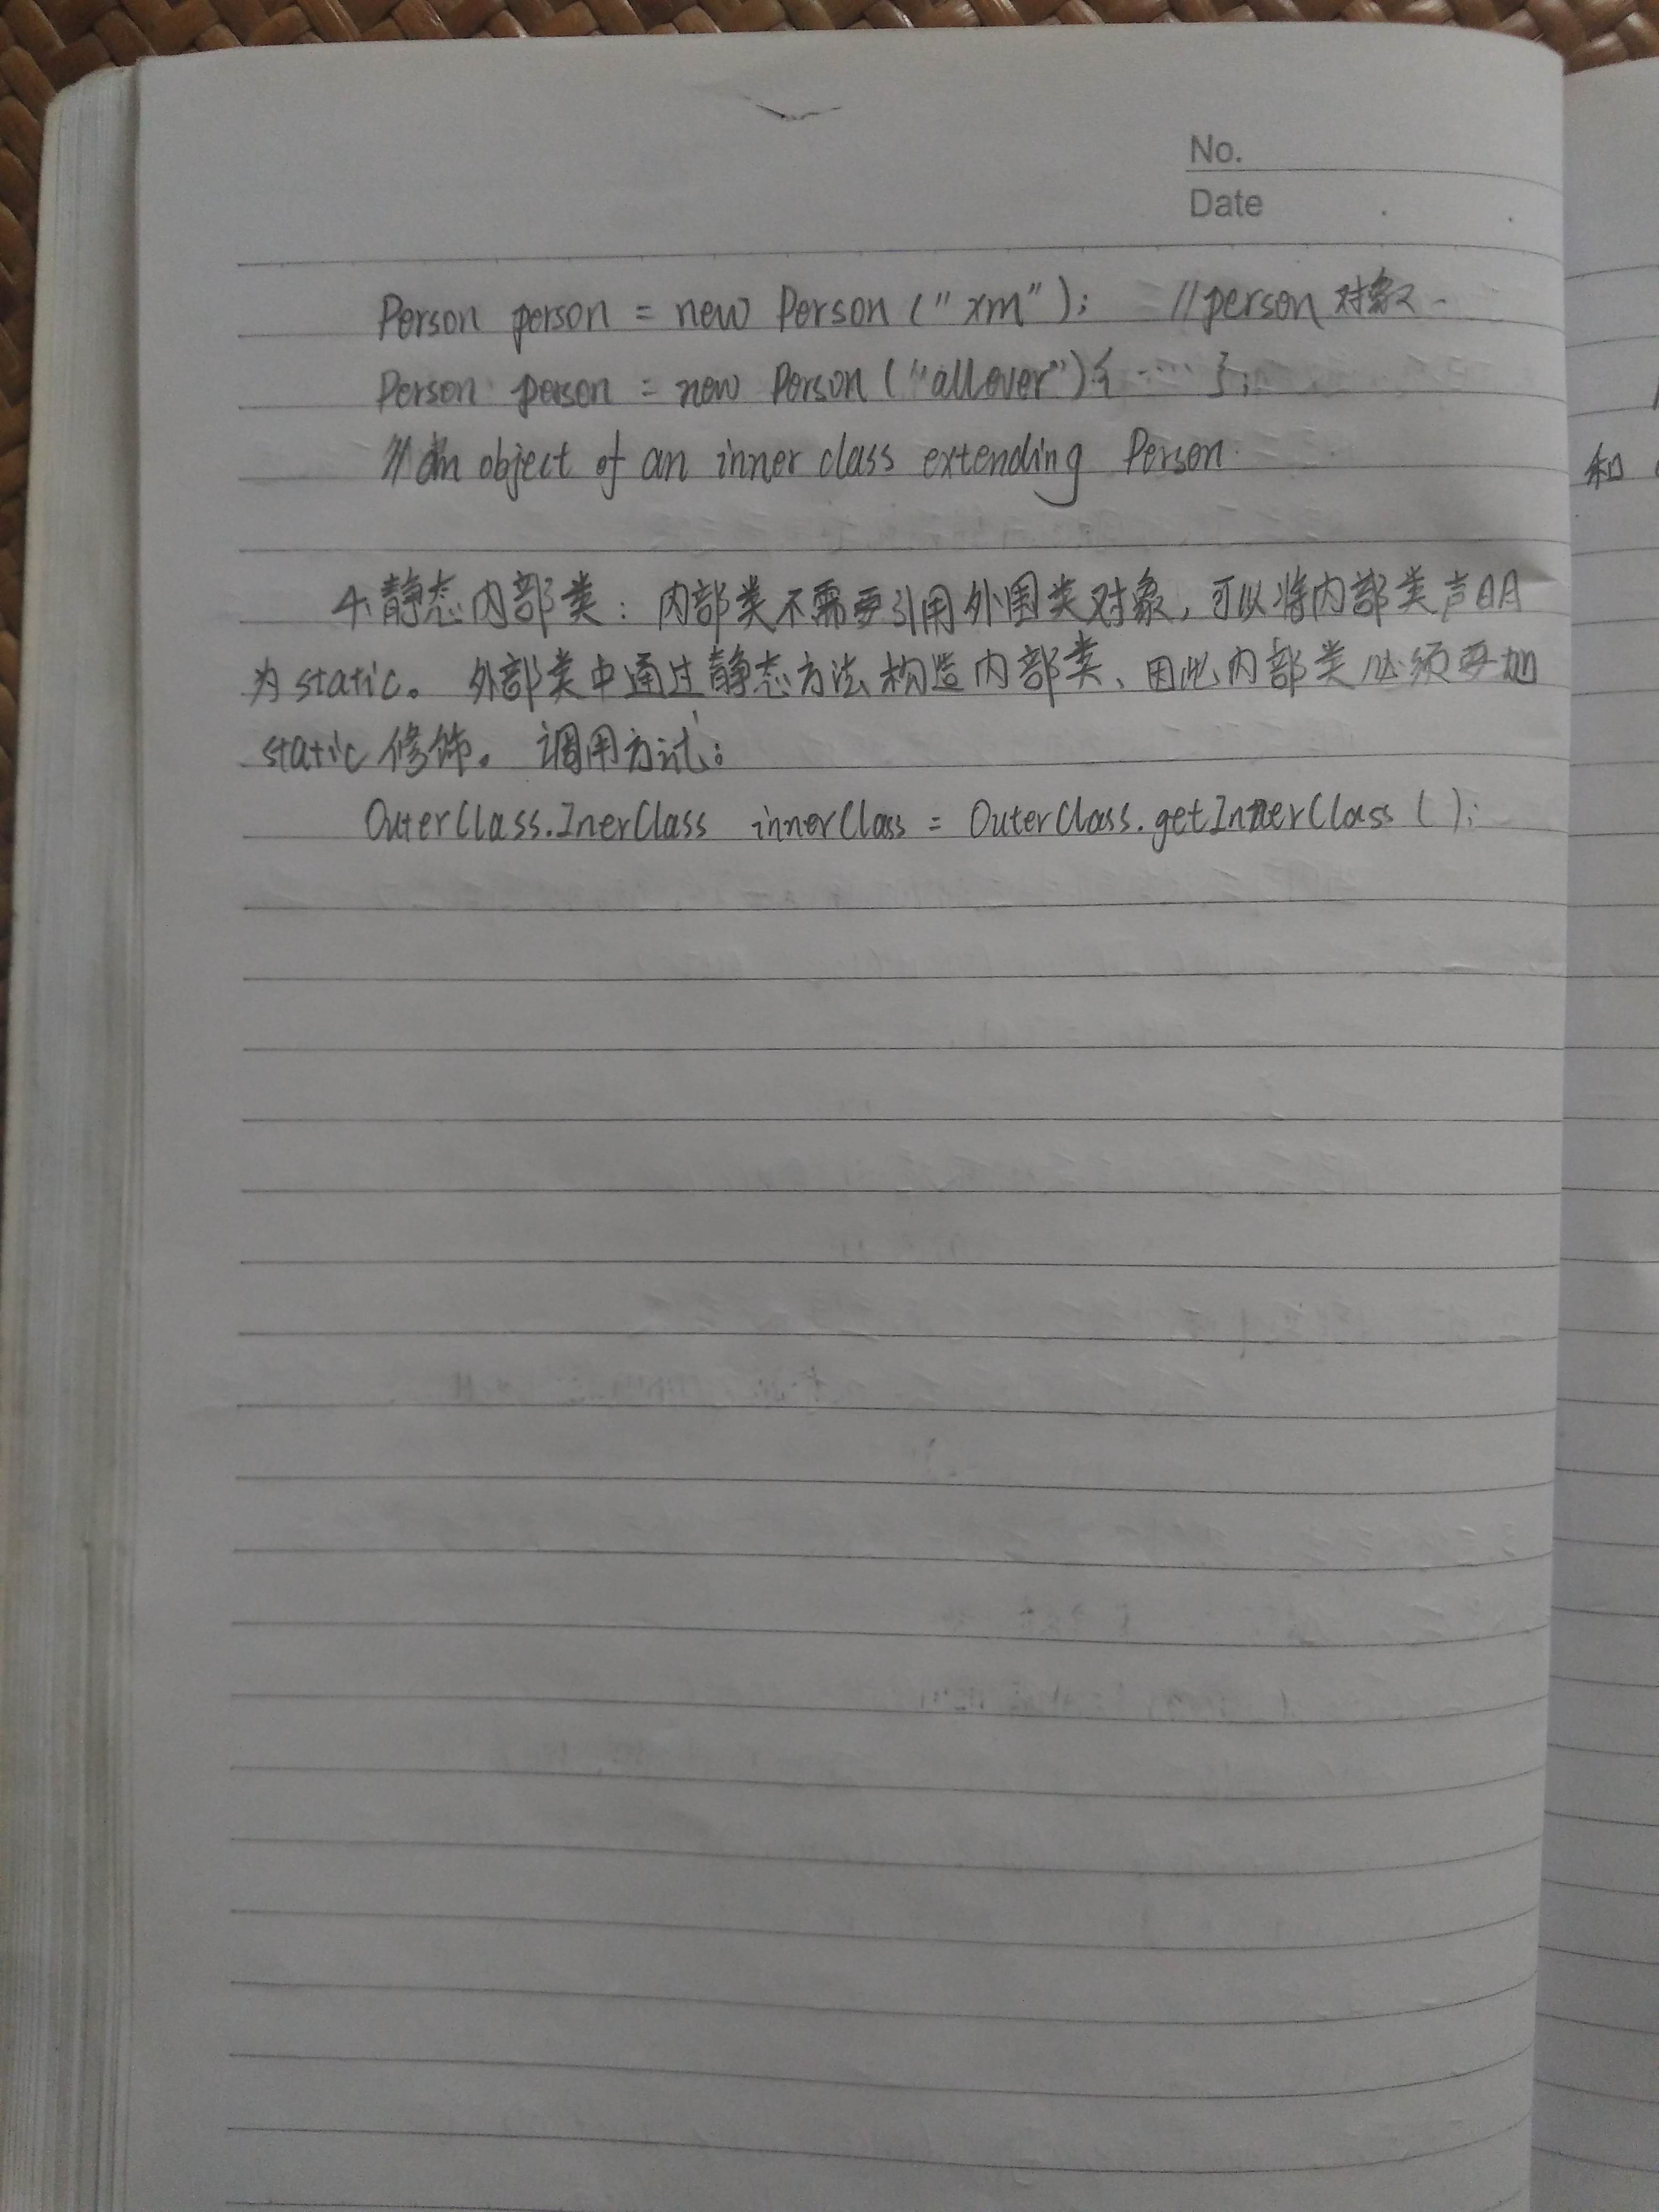 No.
Date
Person person = new Person ("xm"); //person 对象
Person person = new Person ("allover"){ ...... };
// an object of an inner class extending Person.
4、静态内部类：内部类不需要引用外围类对象，可以将内部类声明
为 static。 外部类中通过静态方法构造内部类、因此内部类必须要加
static 修饰。 调用方式：
OuterClass.InerClass innerClass = OuterClass.getInnerClass ( );
和